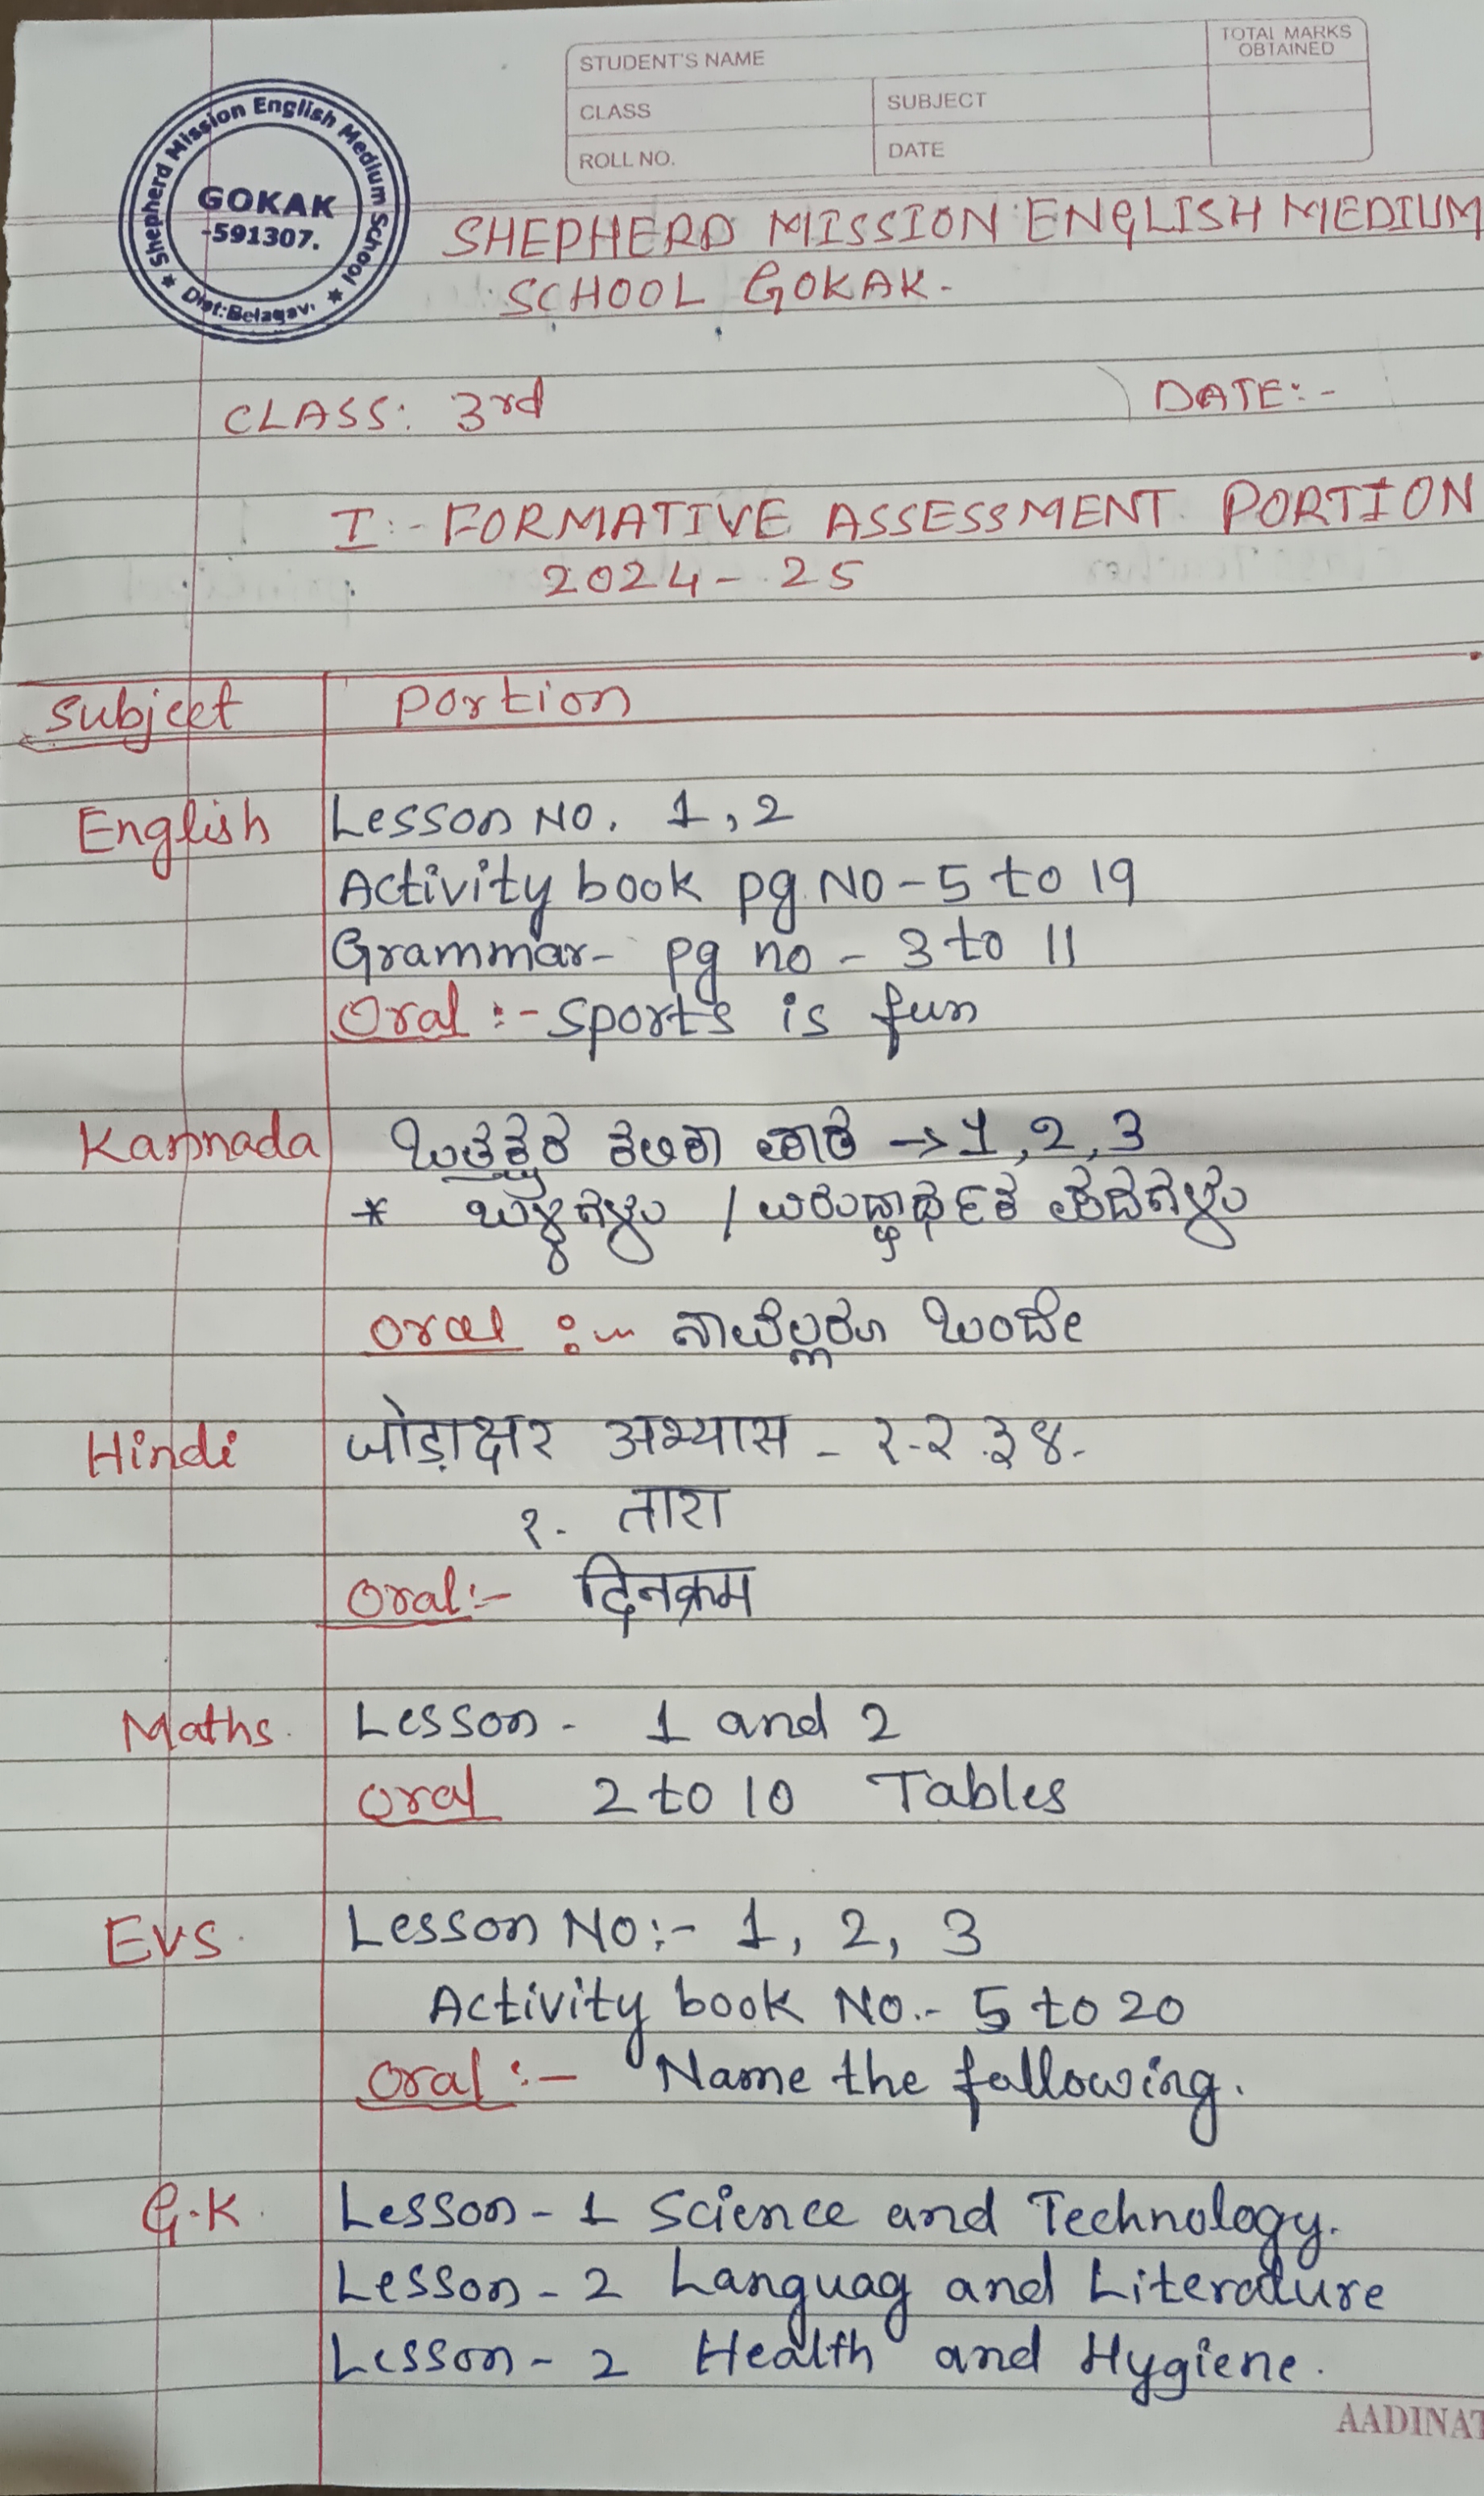 STUDENT'S NAME
TOTAL MARKS OBTAINED
CLASS
SUBJECT
ROLL NO.
DATE
Shepherd Mission English Medium School
GOKAK
-591307.
Dist:Belagavi
SHEPHERD MISSION ENGLISH MEDIUM
SCHOOL GOKAK.
CLASS: 3rd
DATE:-
I:- FORMATIVE ASSESSMENT PORTION
2024-25
Subject Portion
English Lesson NO. 1,2
Activity book pg NO-5 to 19
Grammar- pg no - 3 to 11
Oral :- Sports is fun
Kannada ಒತ್ತಕ್ಷರ ಕಲಿಕಾ ಪಾಠ → 1,2,3
* / ವಿರುದ್ಧಾರ್ಥಕ ಪದಗಳು
oral :- ನಾವೆಲ್ಲರೂ ಒಂದೇ
Hindi जोड़ाक्षर अभ्यास - १-२.३४.
१. तारा
Oral:- दिनक्रम
Maths. Lesson - 1 and 2
oral 2 to 10 Tables
EVS. Lesson No:- 1, 2, 3
Activity book No.- 5 to 20
oral :- Name the following.
G.K. Lesson - 1 Science and Technology.
Lesson - 2 Languag and Literature
Lesson - 2 Health and Hygiene.
AADINAT